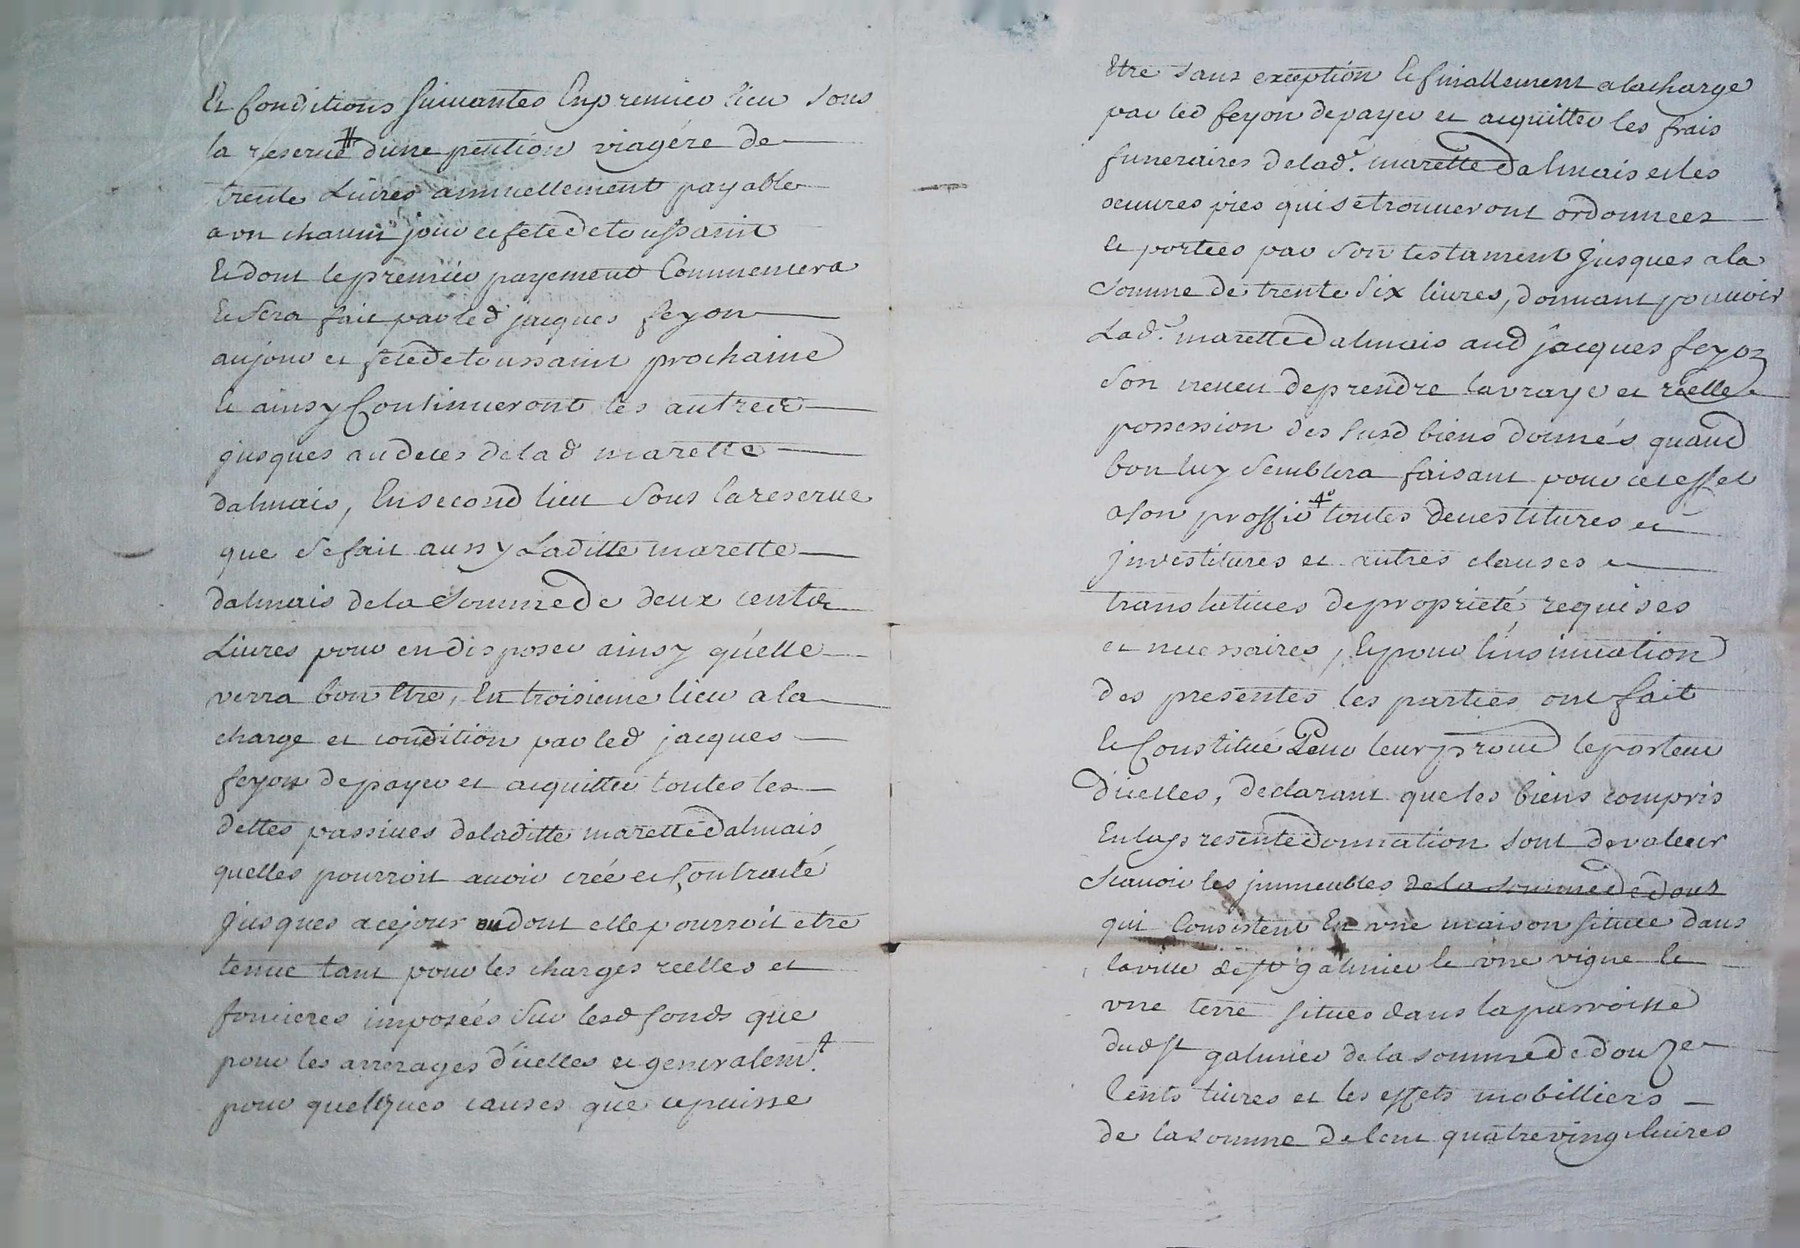 Et Conditions suivantes En premier lieu sous
la reserve # d'une pention viagére de
trente Livres annuellement payable
a un chacun jour et féte de toussaint
Et dont le premier payement Commencera
Et sera fait par led jacques feyon
au jour et féte de toussaint prochaine
Et ainsy Continueront les autres
jusques au deces de lad marette
dalmais, En second lieu sous la reserve
que se fait aussy Laditte marette
dalmais de la somme de deux cents
Livres pour en disposer ainsy quélle
verra bon Etre, En troisieme lieu a la
charge et condition par led jacques
feyon de payer et acquitter toutes les
dettes passives de laditte marette dalmais
quelles pourroit avoir créé et Contracté
Jusques a ce jour ou dont elle pourroit etre
tenue tant pour les charges reelles et
foncieres imposées sur lesd fonds que
pour les arrerages d'icelles et generalemt.
pour quelques causes que ce puisse
Etre sans exception Et finallement a la charge
par led feyon de payer et acquitter les frais
funeraires de lade. marette Dalmais et les
oeuvres pies qui se trouveront ordonnees
Et portées par son testament Jusques a la
somme de trente six livres, donnant pouvoir
Lade. marette Dalmais aud jacques feyon
son neveu de prendre la vraye et réelle
possession des susd biens donnés quand
bon luy semblera faisant pour cet effet
a son proffit toutes devestitures et
jnvestitures et autres clauses
translatives de proprieté, requises
et necessaires, Et pour linsinuation
des presentes les parties ont fait
Et Constitué Pour leur procud le porteur
D'icelles, declarant que les biens compris
En la presente Donnation sont de valeur
scavoir les jmmeubles de la somme de douz
qui Consistent En une maison située dans
la ville de st galmier Et une vigne Et
une terre situés dans la parroisse
dud st galmier de la somme de douze
Cents livres et les effets mobilliers
de la somme de Cent quatre vingt livres